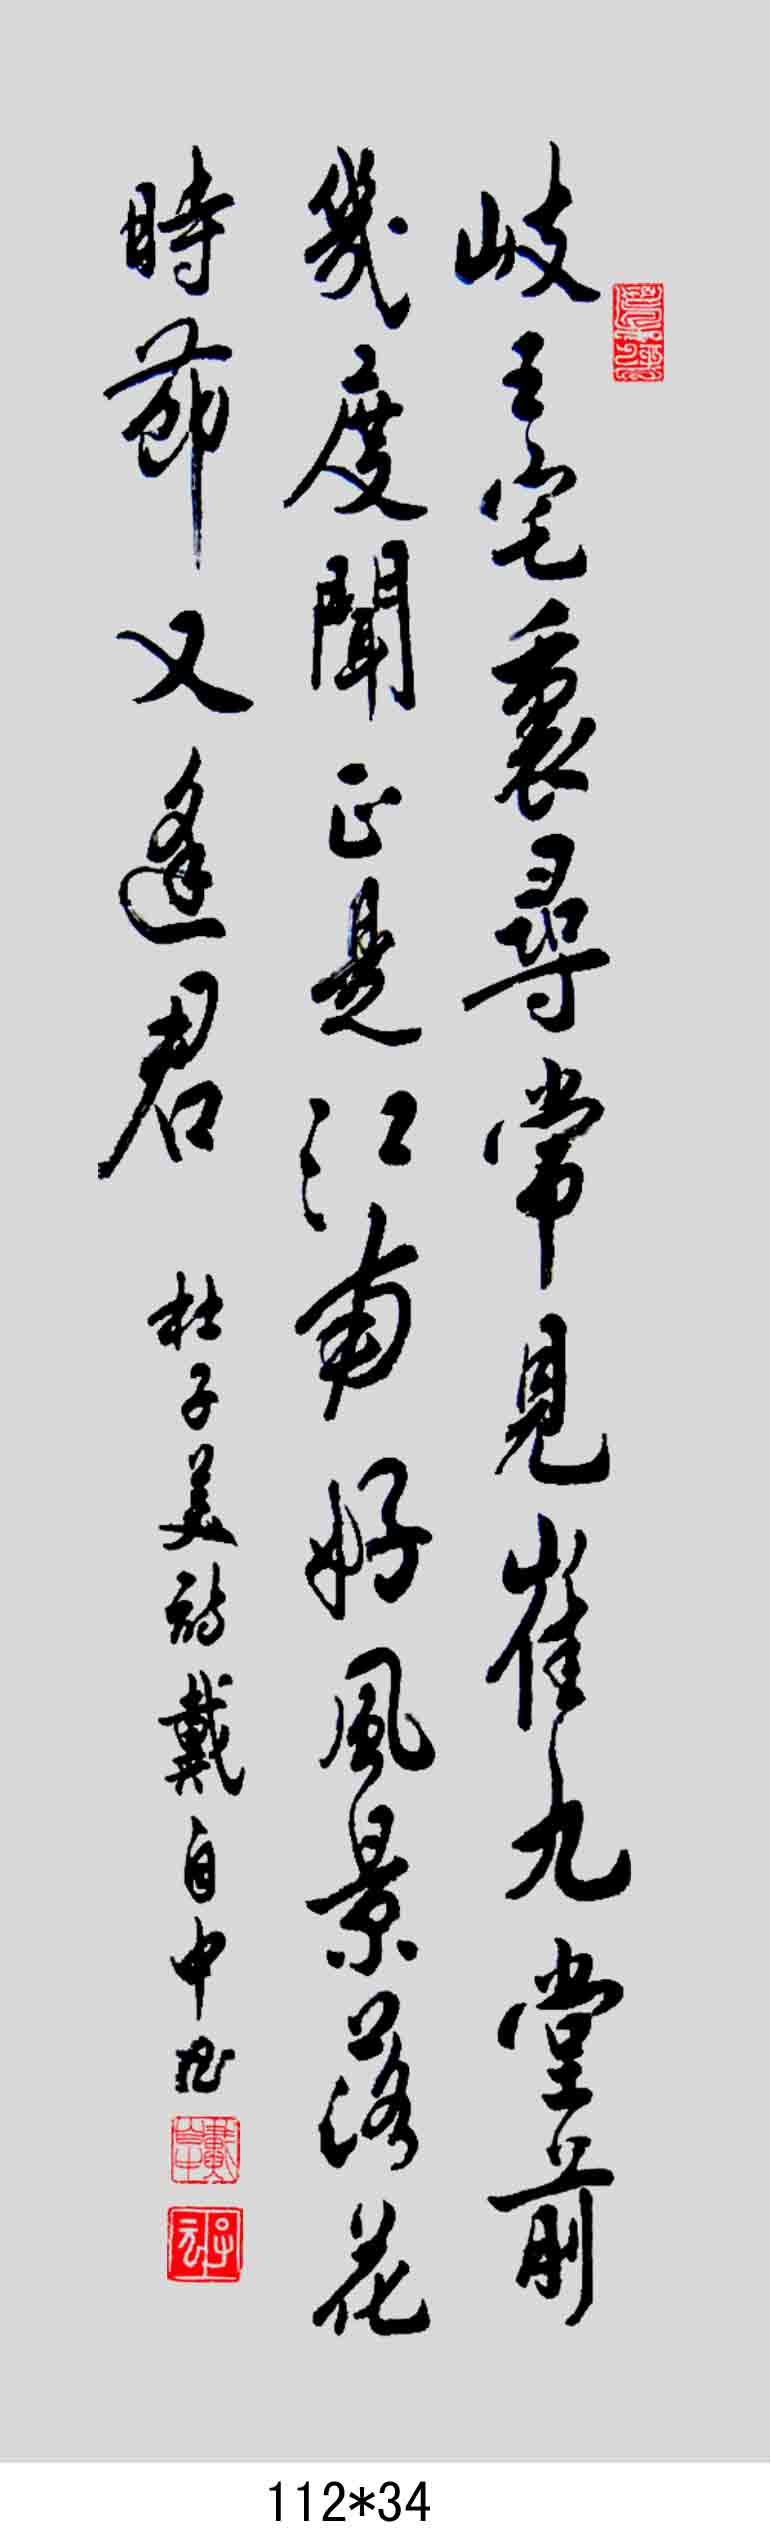 岐王宅裏尋常見崔九堂前
幾度聞正是江南好風景落花
時節又逢君
杜子美詩戴自中书
112*34